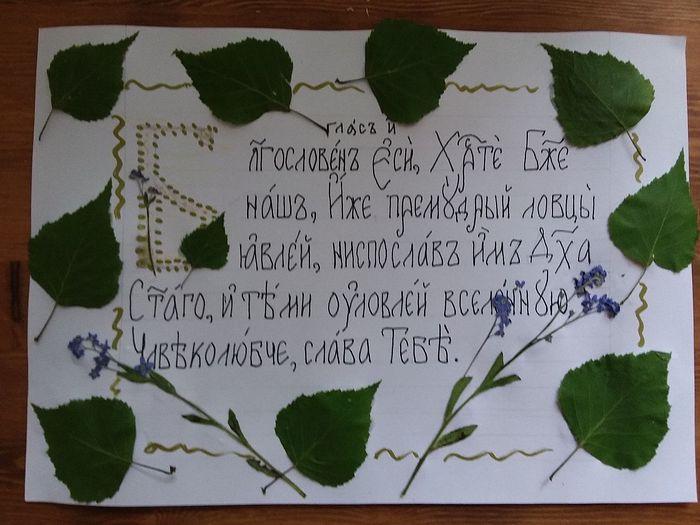 гла́съ и҃
Бл҃гослове́нъ є҆сѝ, Хрⷭ҇тѐ Бж҃е
на́шъ, И҆́же премꙋ́дрый ловцы̀
ꙗ҆вле́й, ниспосла́въ и҆̀мъ Дх҃а
Ст҃а́го, и҆ тѣ́ми оу҆ловле́й вселе́ннꙋю,
Чл҃вѣколю́бче, сла́ва Тебѣ̀.